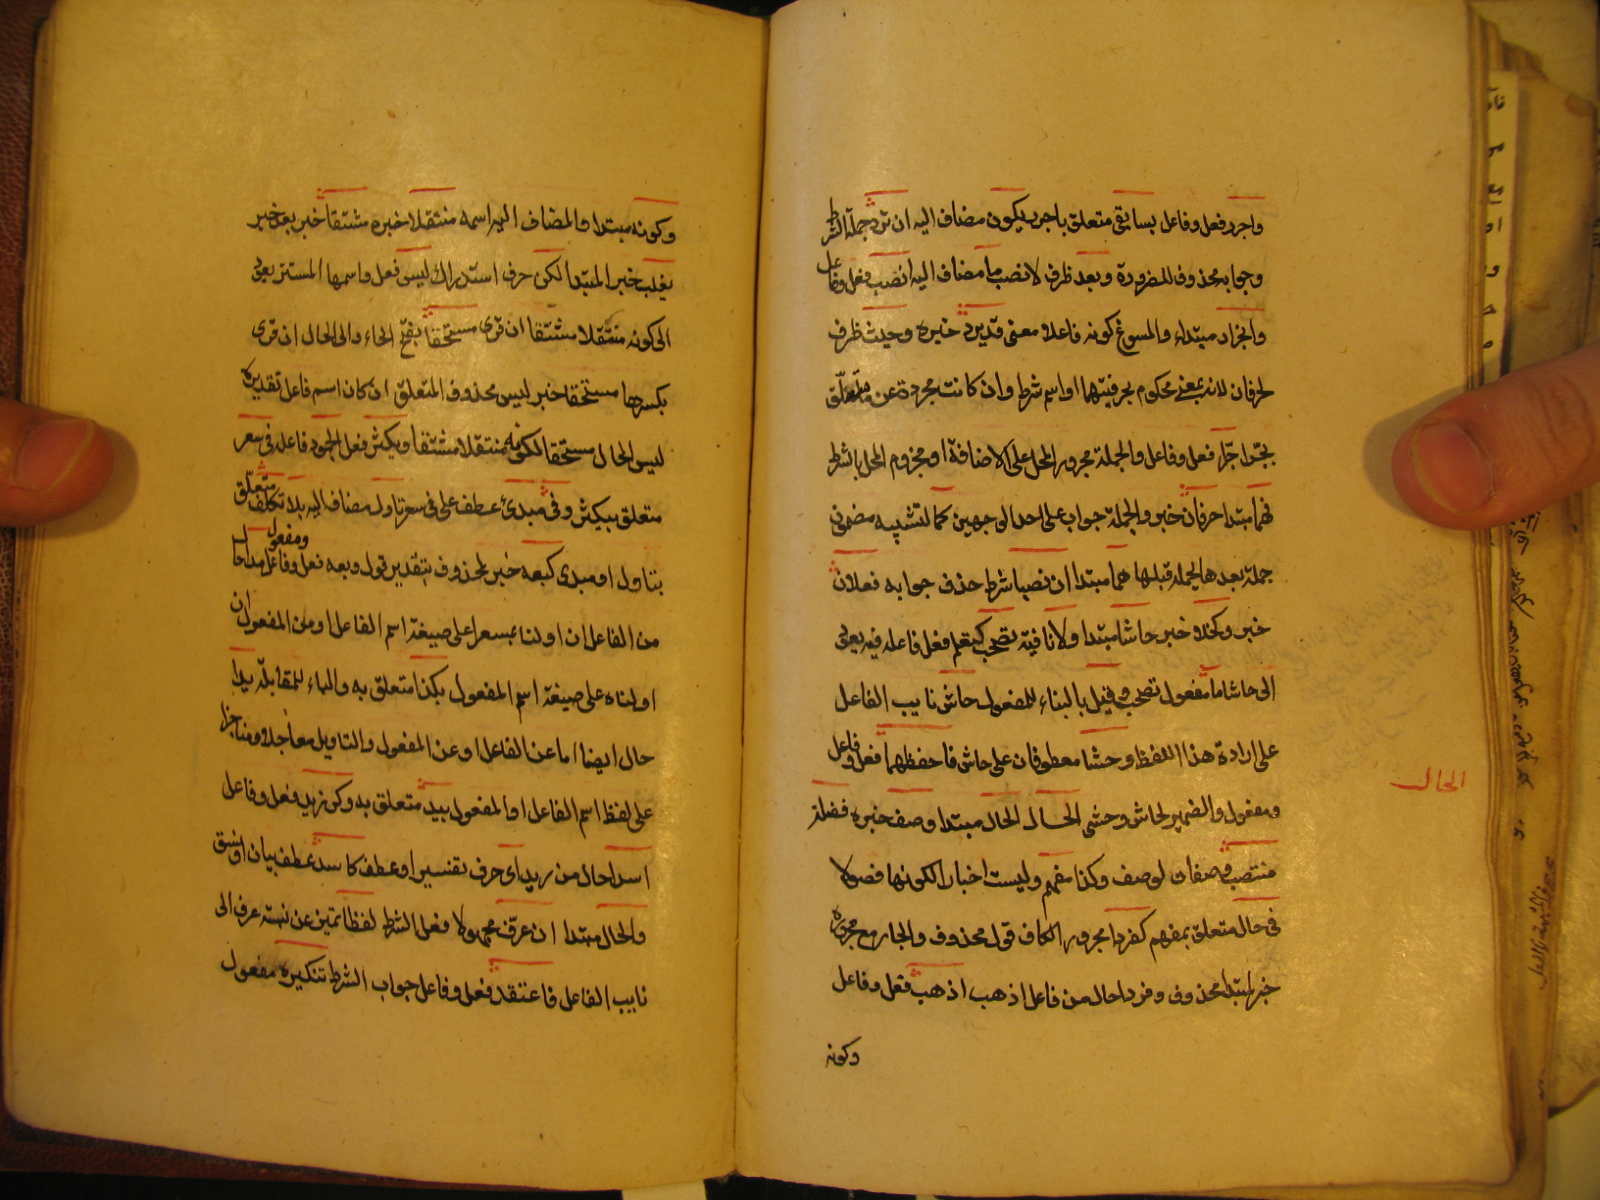 واجرر فعل وفاعل بسابقي متعلق باجرر يكون مضاف اليه ان ترد جملة الشرط
وجوابه محذوف للضرورة وبعد ظرف لانصب ما مضاف اليه انصب فعل وفاعل
وانجرار مبتداء والمسوغ كونه فاعلا معنى قد يرد خبره وحيث ظرف
لحرفان لانه بمعنى محكوم بحرفيتهما او اسم شرط وان كانت مجردة عن ما متعلق
بجرا جرا فعل وفاعل والجملة مجرور المحل على الاضافة او مجزوم المحل بالشرط
فهما مبتدا حرفان خبر والجملة جواب على احد الوجهين كما لتشبيه مضمون
جملة بعدها لجملة قبلها هما مبتدا ان نصبا شرط حذف جوابه فعلان
خبر وكخلا خبر حاشا مبتدا ولا نافية تصحب كيعلم فعل فاعله فيه يعود
الى حاشا ما مفعول تصحب وقيل بالبناء للمفعول حاش نايب الفاعل
على ارادة هذا اللفظ وحشا معطوفان على حاش فاحفظهما فعل وفاعل
ومفعول والضمير لحاش وحشى الحال الحال مبتدا وصف خبره فضلة
منتصب صفات لوصف وكذا مفهم وليست اخبار الكونها فضولا
في حال متعلق بمفهم كفردا مجرور الكاف قول محذوف والجار مع مجروره
خبر لمبتدا محذوف وفردا حال من فاعل اذهب اذهب فعل وفاعل
وكونه
الحال
وكونه مبتدا والمضاف اليه اسمه منتقلا خبره مشتقا خبر بعد خبر
يغلب خبر المبتدا لكن حرف استدراك ليس فعل واسمها المستتر يعود
الى كونه منتقلا مشتقا ان قرئ مستحقا بفتح الحاء والى الحال ان قرئ
بكسرها مستحقا خبر ليس محذوف المتعلق ان كان اسم فاعل تقديره
ليس الحال مستحقا لكونه منتقلا مشتقا ويكثر فعل الجمود فاعله في سعر
متعلق بيكثر وفي مبدئ عطف على في سعر تاول مضاف اليه بلا تكلف متعلق
بتاول او مبدى كبعه خبر لمحذوف بتقدير قول وبعه فعل وفاعل ومفعول مدا حال
من الفاعل ان اولنا بمسعرا على صيغة اسم الفاعل او من المفعول ان
اولناه على صيغة اسم المفعول بكذا متعلق به والباء للمقابلة يدا
حال ايضا اما عن الفاعل او عن المفعول والتاويل معاجلا ومناجزا
على لفظ اسم الفاعل او المفعول بيد متعلق به وكر زيد فعل وفاعل
اسدا حال من زيد اى حرف تفسير او عطف كاسد عطف بيان او نسق
والحال مبتدا ان عرف مجهولا فعل الشرط لفظا تميز عن نسبة عرف الى
نايب الفاعل فاعتقد فعل وفاعل جواب الشرط تنكيره مفعول